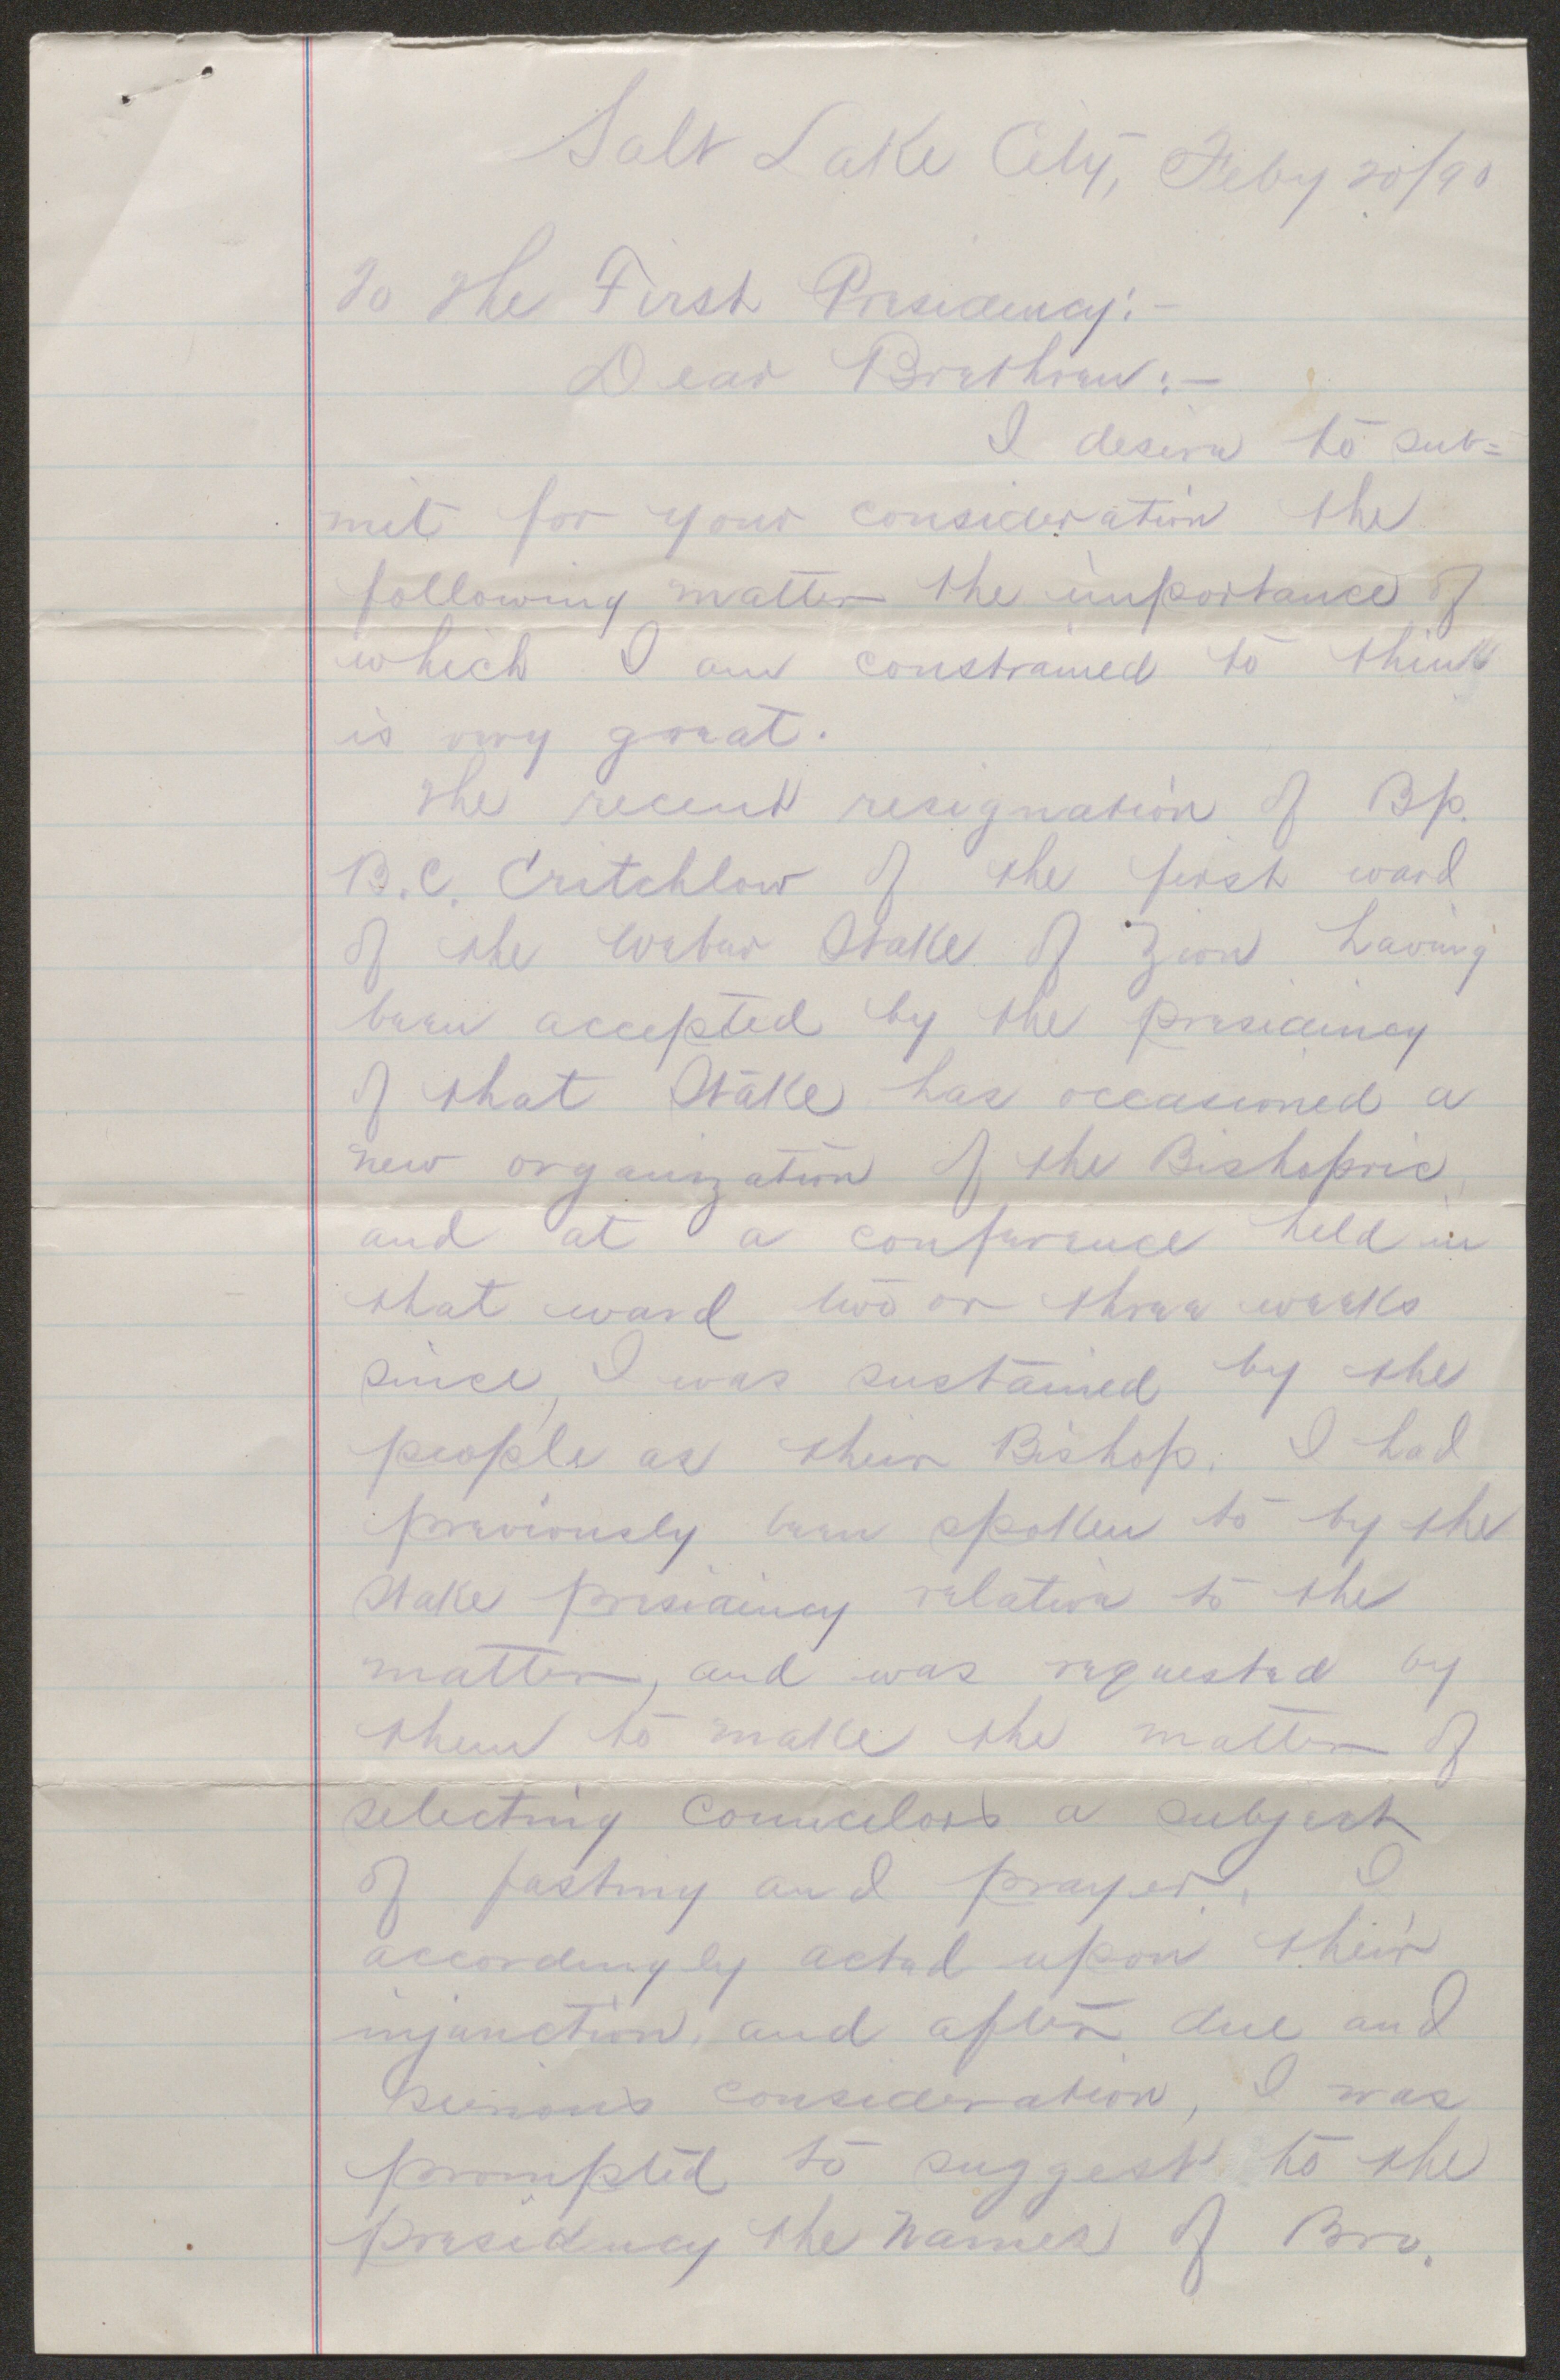 Salt Lake City, Feby 20/90
To the First Presidency:-
Dear Brethren:-
I desire to sub=
mit for your consideration the
following matter the importance of
which I am constrained to think
is very great.
The recent resignation of Bp.
B.C. Critchlow of the first ward
of the Weber Stake of Zion having
been accepted by the presidency
of that Stake has occasioned a
new organization of the Bishopric
and at a conference held in
that ward two or three weeks
since, I was sustained by the
people as their Bishop. I had
previously been spoken to by the
Stake presidency relative to the
matter, and was requested by
them to make the matter of
selecting Councelors a subject
of fasting and prayer. I
accordingly acted upon their
injunction, and after due and
serious consideration, I was
prompted to suggest to the
presidency the names of Bro.